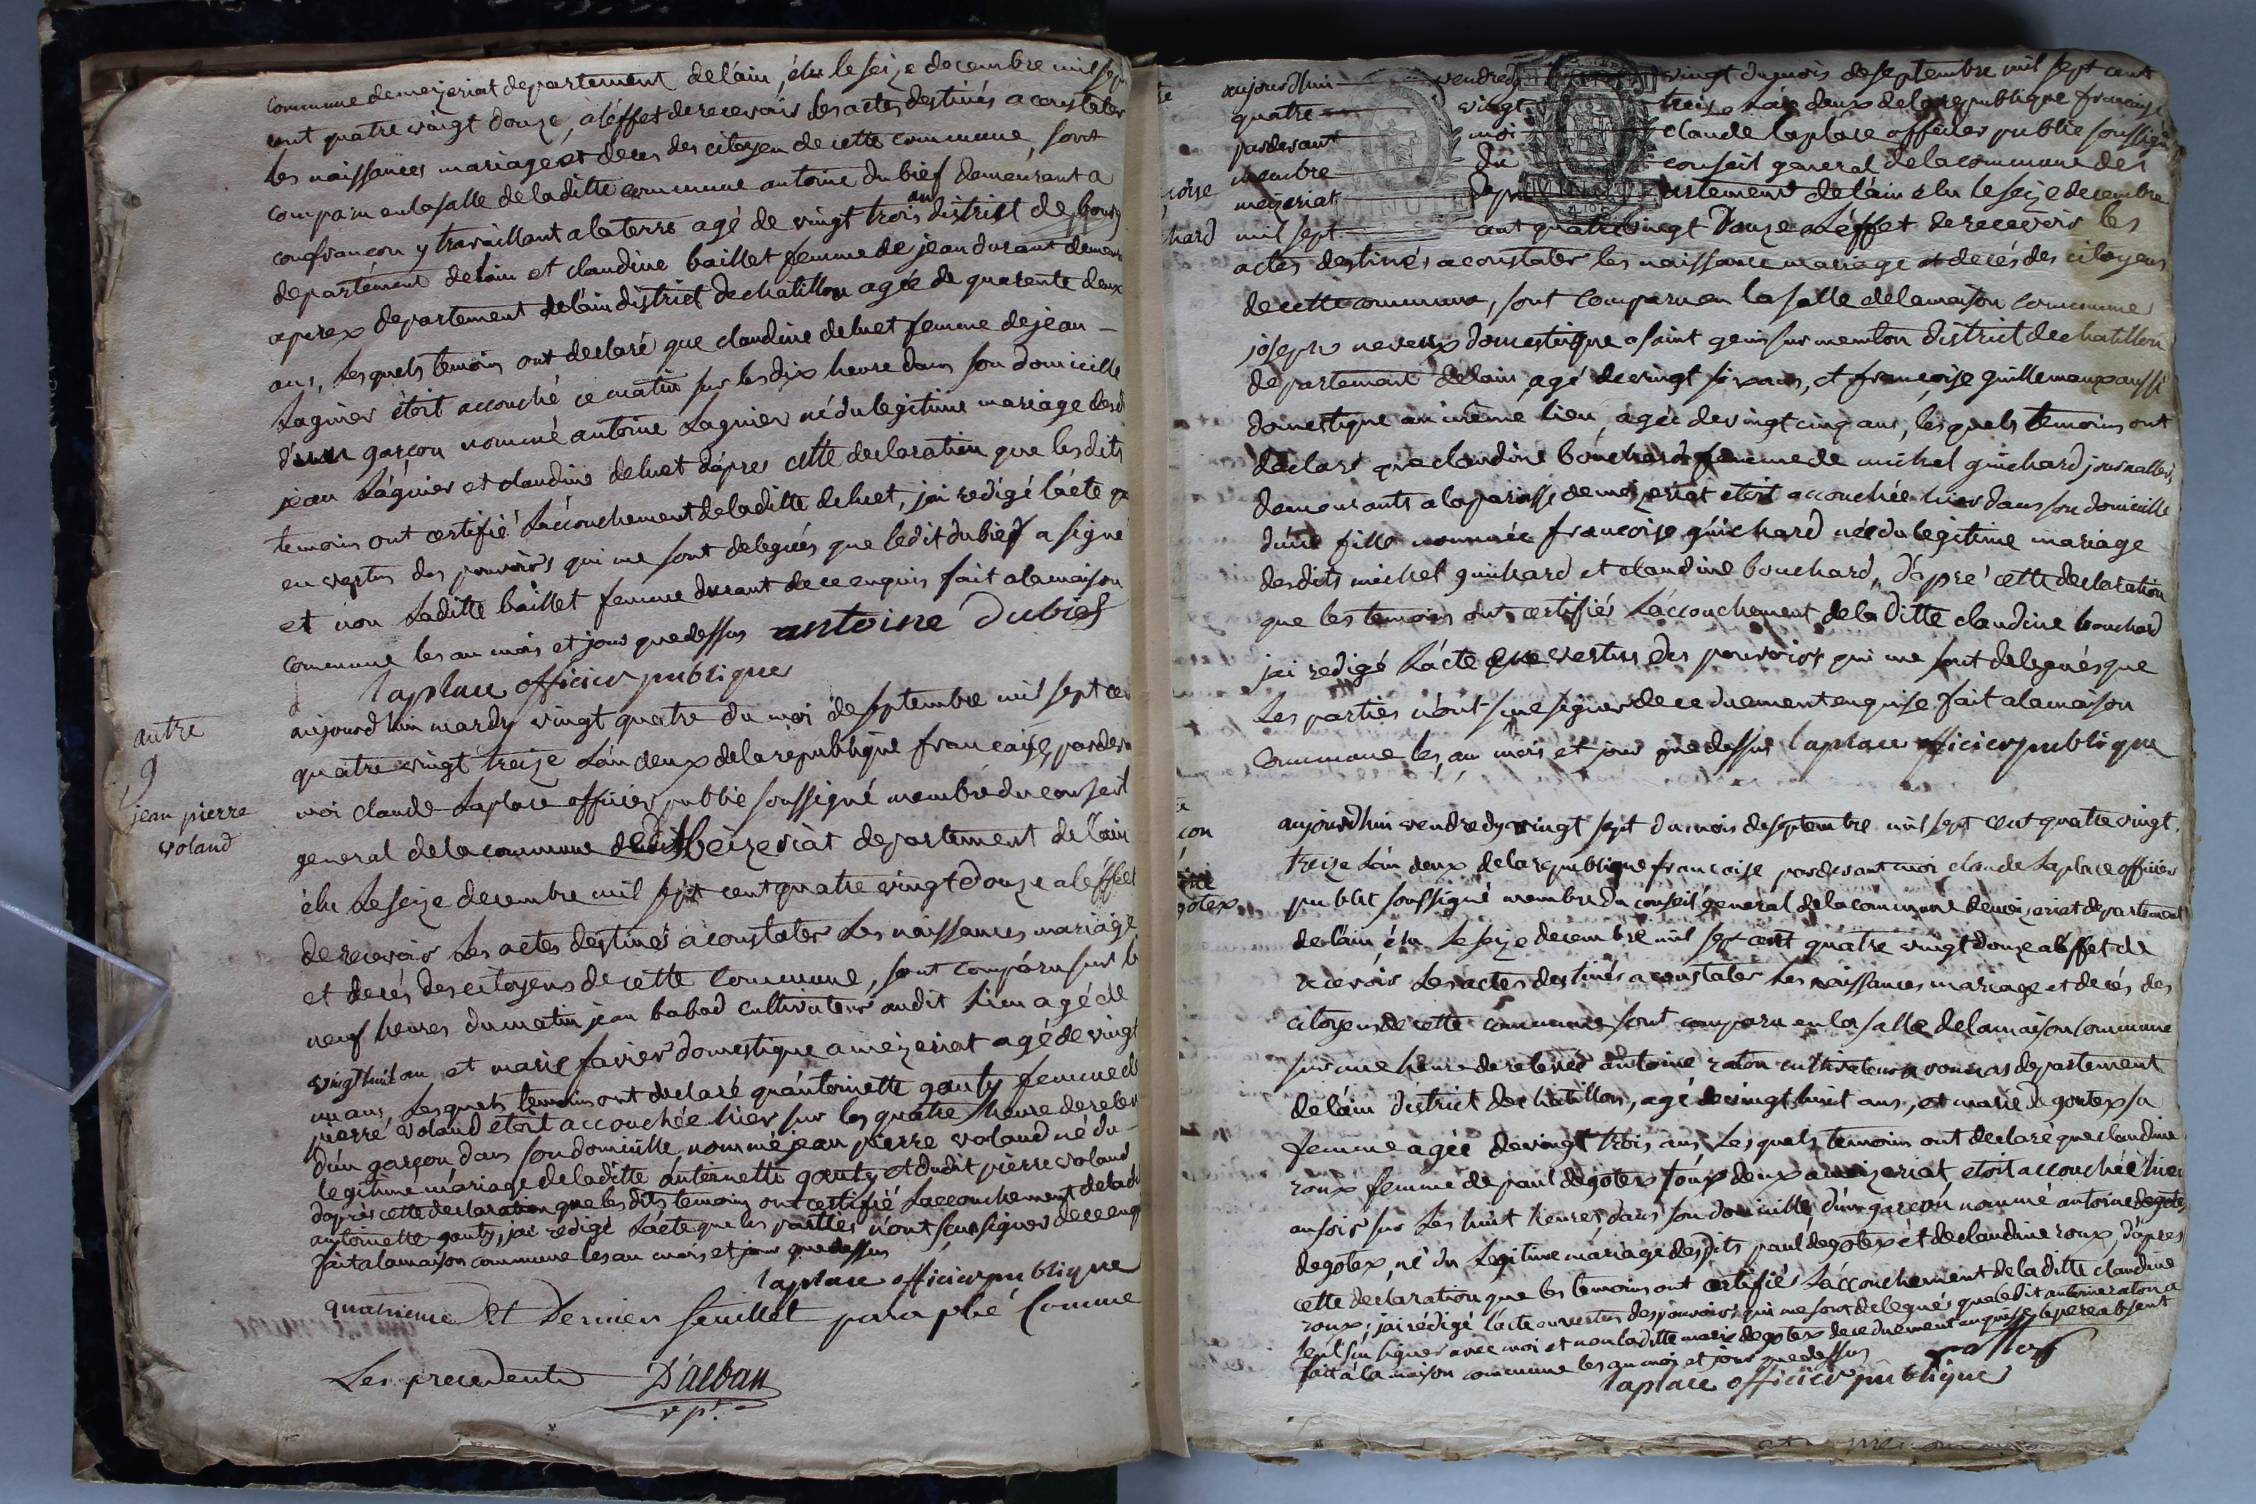 commune de mezeriat departement de lain, élu le seize decembre mil sept
cent quatre vingt douze, a léffet de recevoir les actes destinés a constater
les naissances mariage et deces des citoyen de cette commune, sont
comparu en la salle de laditte commune antoine dubief demeurant a
confrançon y travaillant a la terre agé de vingt trois an district de bourg
departément de lain et claudine baillet femme de jean durant demeur
a perex departement de lain district de chatillon agée de quarente deux
ans, lesquels temoins ont declaré que claudine deluet femme de jean –
Lagnier étoit accouché ce matin sur les dix heure dans son domicille
d'un garçon nommé antoine Lagnier né du legitime mariage desd
jean Lágnier et claudine deluet d'apres cette declaration que lesdits
temoins ont certifié Láccouchement de laditte deluet, jai redigé lácte q
en vertus des pouvoirs qui me sont delegués que ledit dubief a signé
et non laditte baillet femme durant de ce enquis fait a la maison
commune les an mois et jour que dessus antoine dubief
laplace officier publique
autre
9
jean pierre
voland
aujourdhuin mardy vingt quatre du moi de septembre mil sept cen
quatre vingt treize Lán deux de la republique française, pardev
moi claude Laplace officier public soussigné membre du conseil
general de la commune de Mezeriat departement de lain
élu le seize decembre mil sept cent quatre vingt douze a léffet
de recevoir les actes destinés a constater les naissances mariage
et decés des citoyens de cette commune, sont comparu sur le
neuf heures du matin jean babad cultivateur audit lieu agé de
vingt huit an et marie favier domestique a mézeriat agé de vingt
un ans, Lesquels temoins ont declaré quántoinette gonty femme de
pierre voland étoit accouchée hier sur les quatre heure de relev
d'un garçon, dans son domicille, nommé jean pierre voland né du
legitime mariage de laditte antoinette gonty et dudit pierre voland
d'apres cette declaration que lesdits temoins ont certifié Laccouchement de lad
antoinette gonty, jai redigé Lácte que les parties n'ont seu signer de ce enq
fait a la maison commune les an mois et jour que dessus
laplace officier publique
quatrieme et Dernier feuillet paraphé Comme
Les precedents D'alban
vp.t
aujourdhuin vendredy vingt du mois de septembre mil sept cent
quatre vingt treize, lán deux de la republique françoise
pardevant moi claude laplace officier public soussigné
membre du conseil general de la commune de
mézeriat departement de lain élu le seize decembre
mil sept cent quatre vingt Douze a Léffet de recevoir les
actes destinés a constater les naissance mariage et decés des citoyens
de cette commune, sont comparu en la salle de la maison commune
joseph neveux domestique a saint genis sur menton district de chatillon
departement de lain, agé de vingt six ans, et françoise guillemaux aussi
domestique au même lieu, agée de vingt cinq ans, lesquels temoins ont
declaré que claudine bouchard femme de michel guichard journallier,
demeurants a la paroisse de mezeriat etoit accouchée hier dans son domicille
dúne fille nommée françoise guichard née du legitime mariage
desdits michel guichard et claudine bouchard, d'apré cette declaration
que les temoins ont certifiés Láccouchement de la ditte claudine bouchard
jai redigé Lácte en vertus des pouvoirs qui me sont delegués que
Les parties n'ont seu signer de ce duement enquise fait a la maison
commune les an mois et jour que dessus laplace officier publique
aujourdhuin vendredy vingt sept du mois de septembre mil sept cent quatre vingt
treize Lán deux de la republique françoise pardevant moi claude Laplace officier
public soussigné membre du conseil general de la commune de mezeriat departement
de lain élu le seize decembre mil sept cent quatre vingt douze a léffet de
recevoir Les actes destinés a constater les naissances mariage et decés des
citoyens de cette commune sont comparu en la salle de la maison commune
sur une heure de relevée antoine raton cultivateur a vonnas departement
de láin district de chatillon, agé de vingt huit ans, et marie degotex sa
femme agée de vingt trois ans Lesquels temoins ont declaré que claudine
roux femme de paul degotex tous deux a mezeriat, etoit accouchée hier
au soir sur Les huit heures, dans son domicille, d'un garçon nommé antoine
degotex, né du Legitime mariage desdits paul degotex et de claudine roux, d'apres
cette declaration que les temoins ont certifiés Láccouchement de la ditte claudine
roux, jai redigé lácte en vertus des pouvoirs qui me sont delegués que ledit antoine raton a
seul sin signer avec moi et non laditte marie degotex de ce duement enquise, le pere absent
fait a la maison commune les an moi et jour que dessus
laplace officier publique